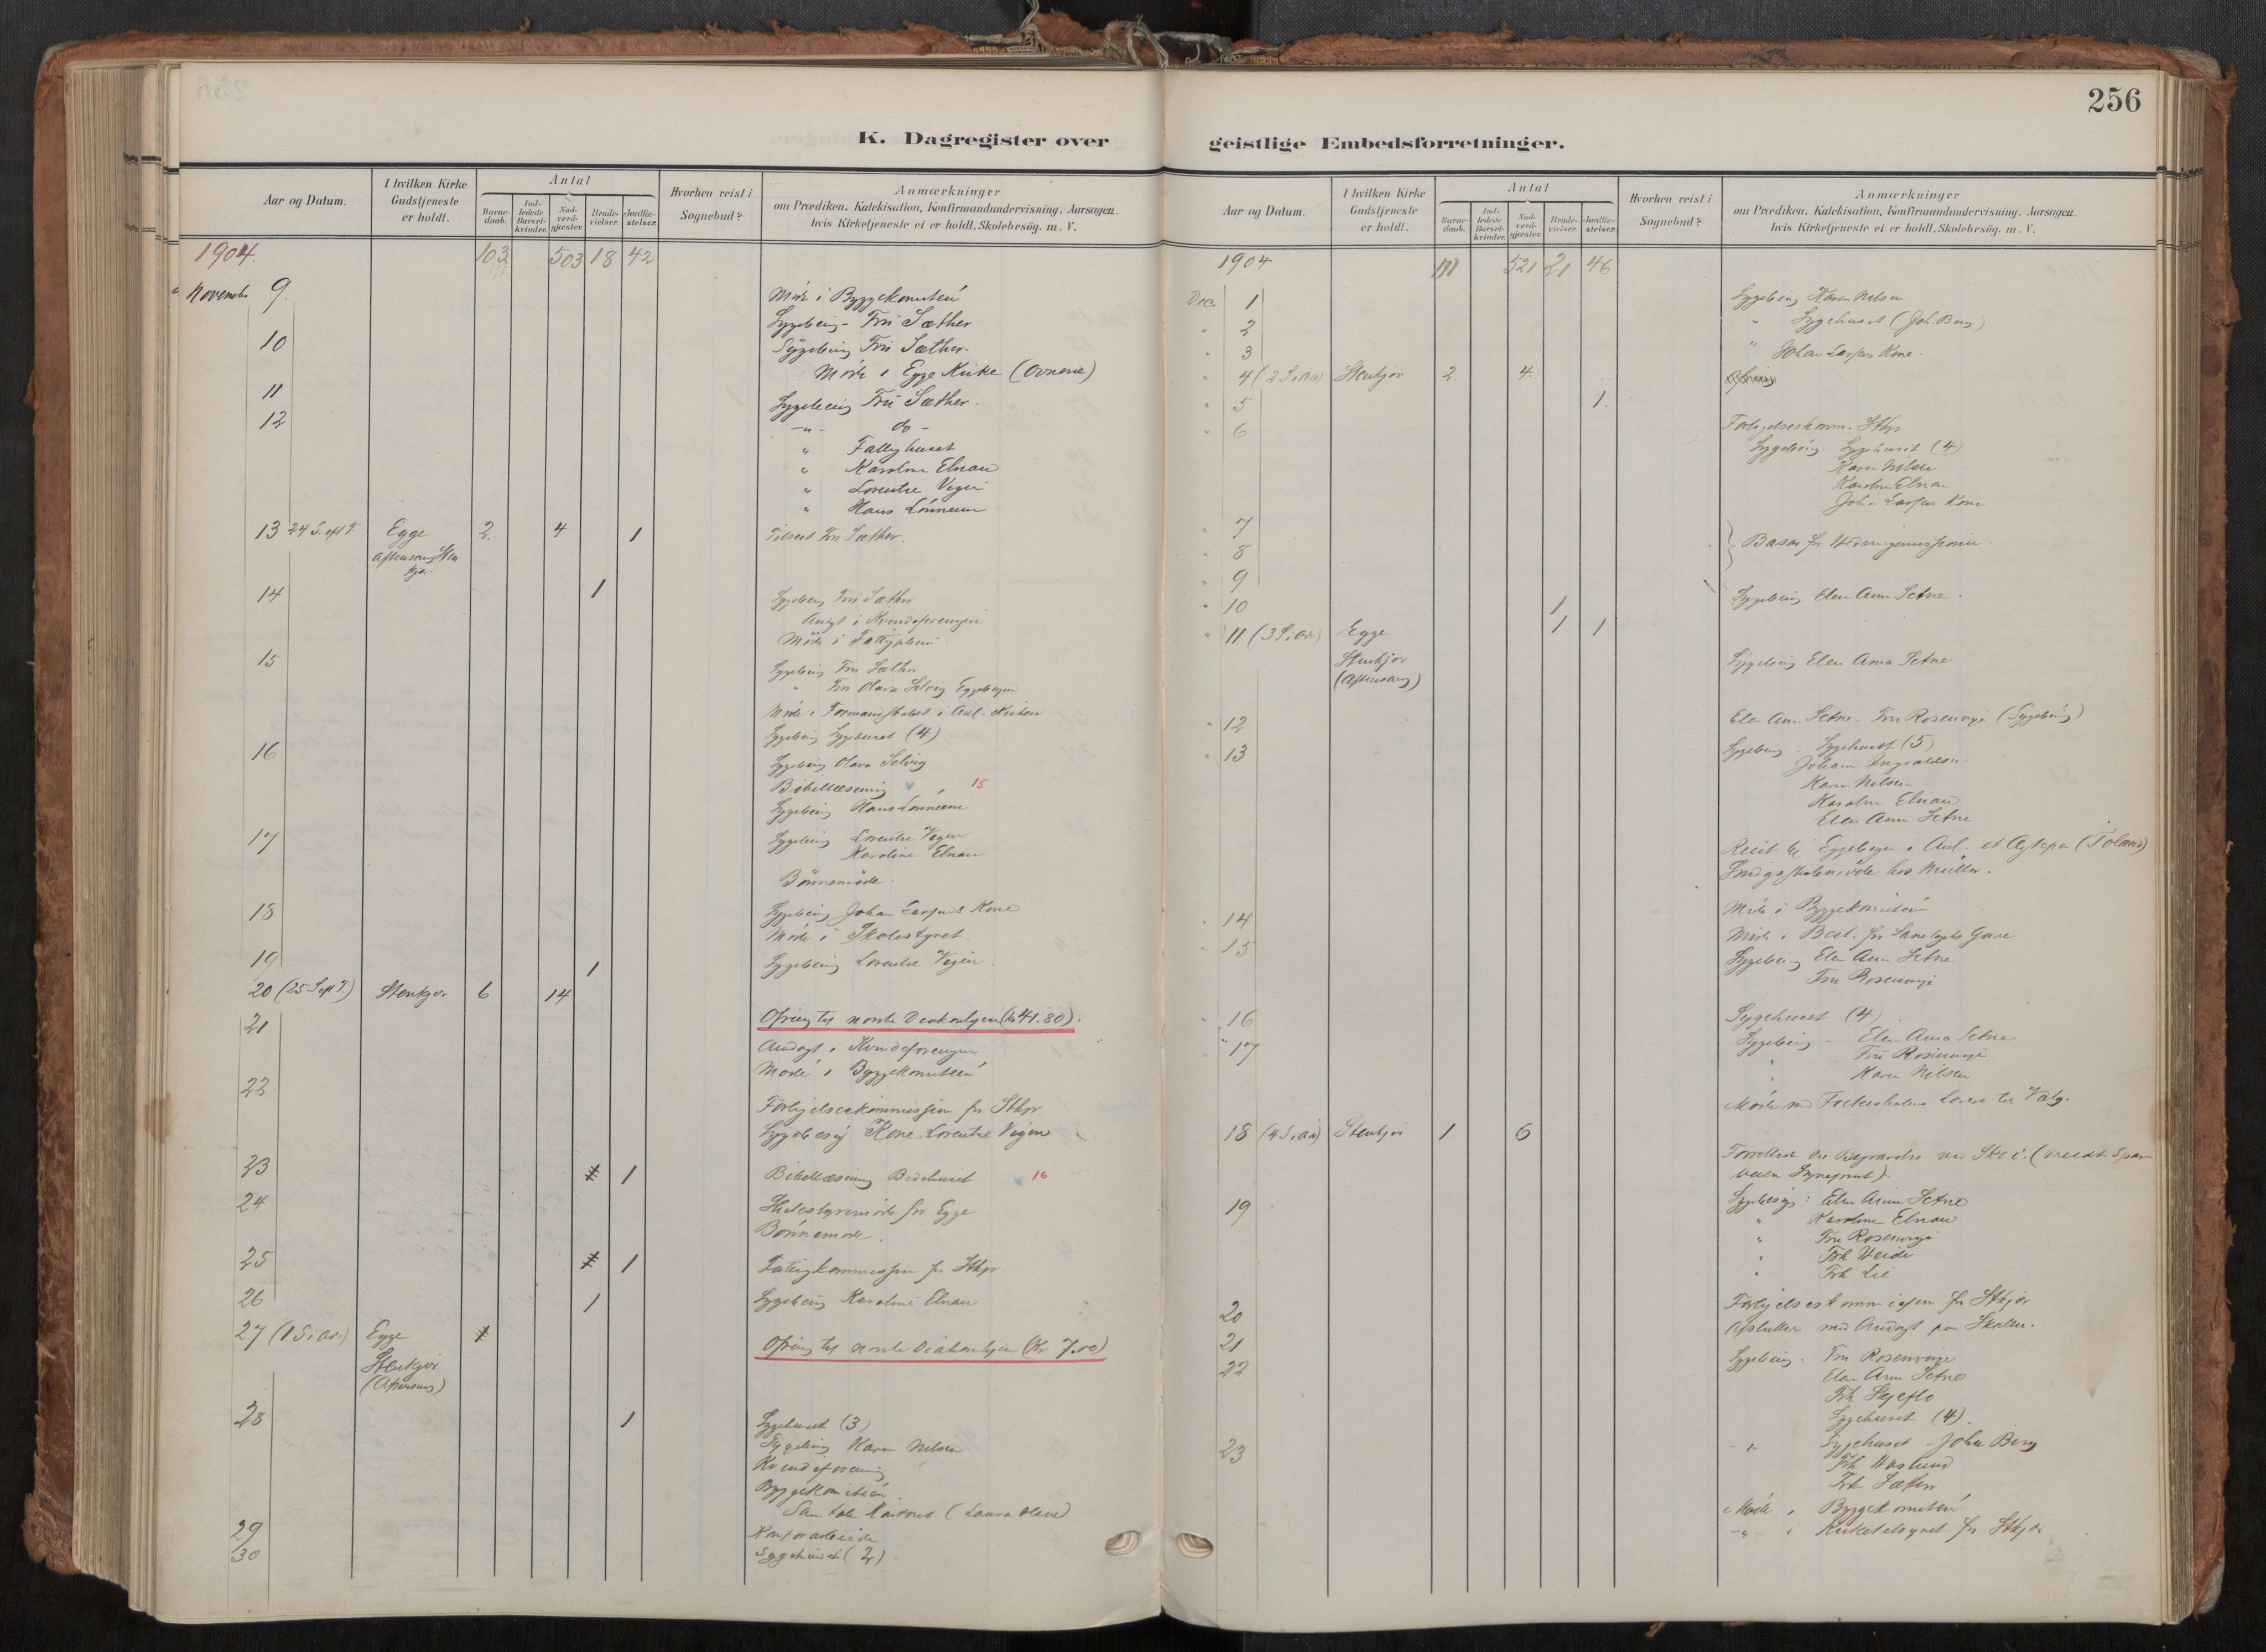 256
K. Dagregister over
Aar og Datum.
I hvilken Kirke Gudstjeneste er holdt.
Antal
Barne-daab.
Ind-ledede Barsel-kvinder.
Nad-verd-gjæster.
Brude-vielser.
Jordfæ-stelser.
Hvorhen reist i Sognebud?
Anmærkninger
om Prædiken, Katekisation, Konfirmandundervisning, Aarsagen,
hvis Kirketjeneste ei er holdt, Skolebesøg. m. V.
1904. 103 503 18 42
November 9. Møde i Byggekomiteen
Sygebesøg - Fru Sæther
10 Sygebesøg Fru Sæther.
Møde i Egge Kirke (Ovnene)
11 Sygebesøg Fru Sæther.
12 -"- do -
" Fattighuset
" Karoline Elnan
" Lorentse Vegen
" Hans Lønnem
13 24 S. eft T. Egge 2. 4 1 Tilsaet Fru Sæther.
Aftensang Sten
kjær.
14 1 Sygebesøg Fru Sæther
Andagt i Kvindeforeningen
Møde i
15 Sygebesøg Fru Sæther
" Fru Olava Selvig Eggebogen
Møde i Formandskabet i Anl. Kirken
Sygebesøg Sygehuset (4)
16 Sygebesøg Olava Selvig
Bibellæsning 15
Sygebesøg Hans Lønnem
17 Sygebesøg Lorentse Vegen
Karoline Elnan
Bönnemøde.
18 Sygebesøg Johan Kone
Møde i Skolestyret.
19 1 Sygebesøg Lorentse Vegen.
20 (25 S eft T.) Stenkjær 6 14
21 Ofring til norske Diakonhjem (kr 41.80).
Andagt i Kvindeforeningen
Møde i Byggekomiteen
22 Forligelseskommission for Stkjr
Sygebesøg Kone Lorentse Vegen
23 1 1 Bibellæsning Bedehuset 16
24 Skolestyremøde for Egge
Bönnemøde.
25 1 1 Fattigkommission for Stkjr.
26 1 Sygebesøg Karoline Elnan
27 (1 S i Adv.) Egge 1 Ofring til norske Diakonhjem (Kr 7.00)
Stenkjær
(Aftensang)
28 1 Sygehuset (3)
Sygebesøg Karen Nilsen
Kvindeforening
Byggekomiteen.
Samtale Kontoret (Laura Olsen)
29 Kontorarbeide
30 Sygehuset (2).
geistlige Embedsforretninger.
Aar og Datum.
I hvilken Kirke Gudstjeneste er holdt.
Antal
Barne-daab.
Ind-ledede Barsel-kvinder.
Nad-verd-gjæster.
Brude-vielser.
Jordfæ-stelser.
Hvorhen reist i Sognebud?
Anmærkninger
om Prædiken, Katekisation, Konfirmandundervisning, Aarsagen,
hvis Kirketjeneste ei er holdt, Skolebesøg. m. V.
1904 111 521 21 46
Dec. 1 Sygebesøg Karen Nilsen
" 2 " Sygehuset (Joh. Berg)
" 3 " Johan Kone.
" 4 (2 S i Adv) Stenkjær 2. 4.
" 5 1.
" 6 Forligelseskomm. Stkjr
Sygebesøg: Sygehuset (4)
Karen Nilsen
Karoline Elnan
Johan Kone
" 7
" 8 Basar for Hedningemissionen
" 9
" 10 1 Sygebesøg Elen Anna Setne.
" 11 (3 S i Adv) Egge 1 1
Stenkjær Sygebesøg Elen Anna Setne
(Aftensang)
" 12 Elen Anna Setne. Fru Rosenvinge (Sygebesøg)
" 13 Sygebesøg - Sygehuset (5)
Johan Ingvaldsen
Karen Nilsen
Karoline Elnan
Elen Anna Setne
Reist til Eggebogen i Anl. et Ægtepar (Foland)
hos Müller.
" 14 Møde i Byggekomiteen
" 15 Møde i Best. for Gave
Sygebesøg Elen Anna Setne
Fru Rosenvinge
" 16 Sygehuset (4)
" 17 Sygebesøg - Elen Anna Setne
" Fru Rosenvinge
" Karen Nilsen
Møde med Valg.
18 (4 S i Adv) Stenkjær 1 6
Forrettet en Begravelse ved Skei. (
19 Sygebesøg: Elen Anna Setne
" Karoline Elnan
" Fru Rosenvinge
" Frk Weide
" Frk Lie
20 Forligelseskommission for Stkjær
21 Afslutter med Andagt paa Skolen.
22 Sygebesøg: Fru Rosenvinge
Elen Anna Setne
Frk Skjeflo
Sygehuset (4).
23 -"- Sygehuset - Johan Berg
Frk Waslund
Frk Sæther
Møde i Byggekomiteen
-"- i Kirketilsynet for Stkjær